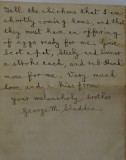 Tell the chickens that I am
shortly coming home, and that
they must have an offering
of eggs ready for me. Give
Scot a pat, Sticky and Limes
a stroke each, and
more for me. Very much
love and a kiss from
your melancholy brother
George M.